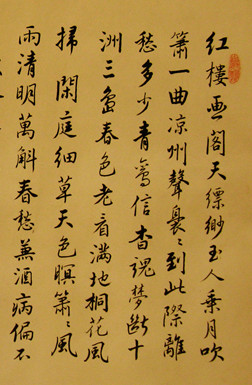 紅樓画閣天縹緲玉人乗月吹
簫一曲凉州聲裊〻到此際離
愁多少青鸞信杳魂夢断十
洲三島春色老看滿地桐花風
掃閑庭細草天色暝簫〻風
雨清明萬斛春愁兼酒病偏不